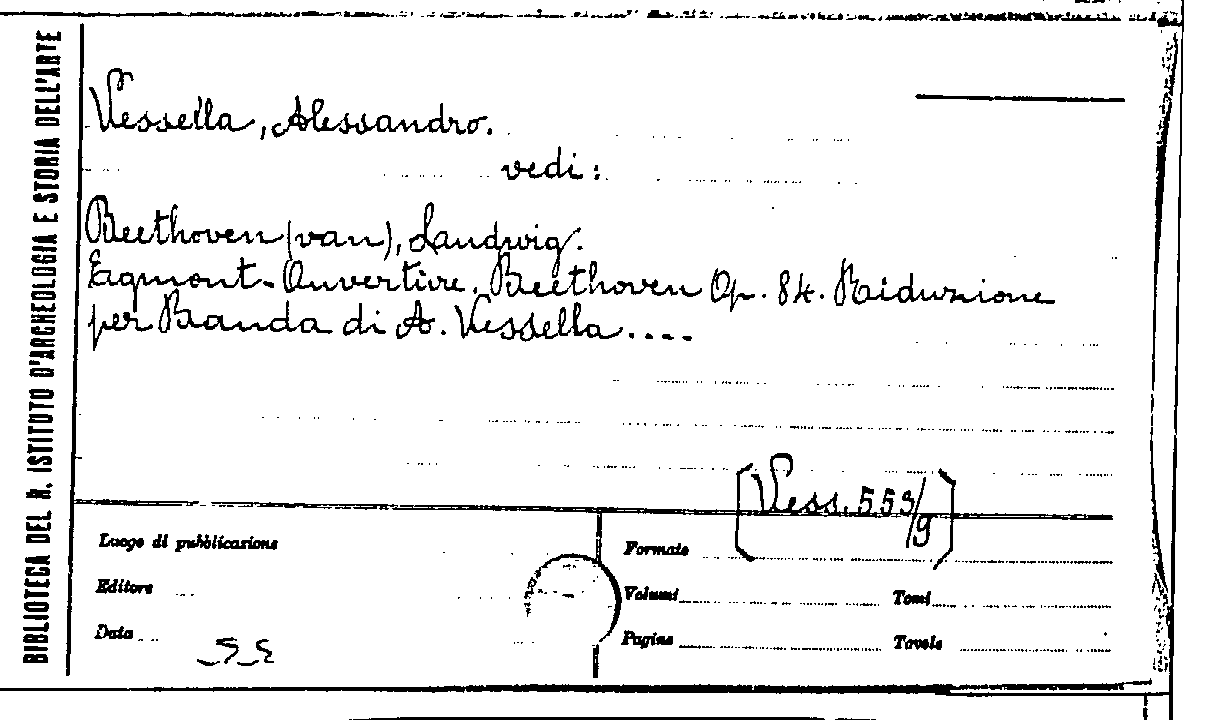 BIBLIOTECA DEL R. ISTITUTO D'ARCHEOLOGIA E STORIA DELL'ARTE
Vessella, Alessandro.
vedi:
Beethoven (van), Landwig.
Egmont-Ouverture. Beethoven Op. 84. Riduzione
per Banda di A. Vessella....
[Vess. 553/9]
Luogo di pubblicazione
Editore
Data
Formato
Volumi Tomi
Pagine Tavole